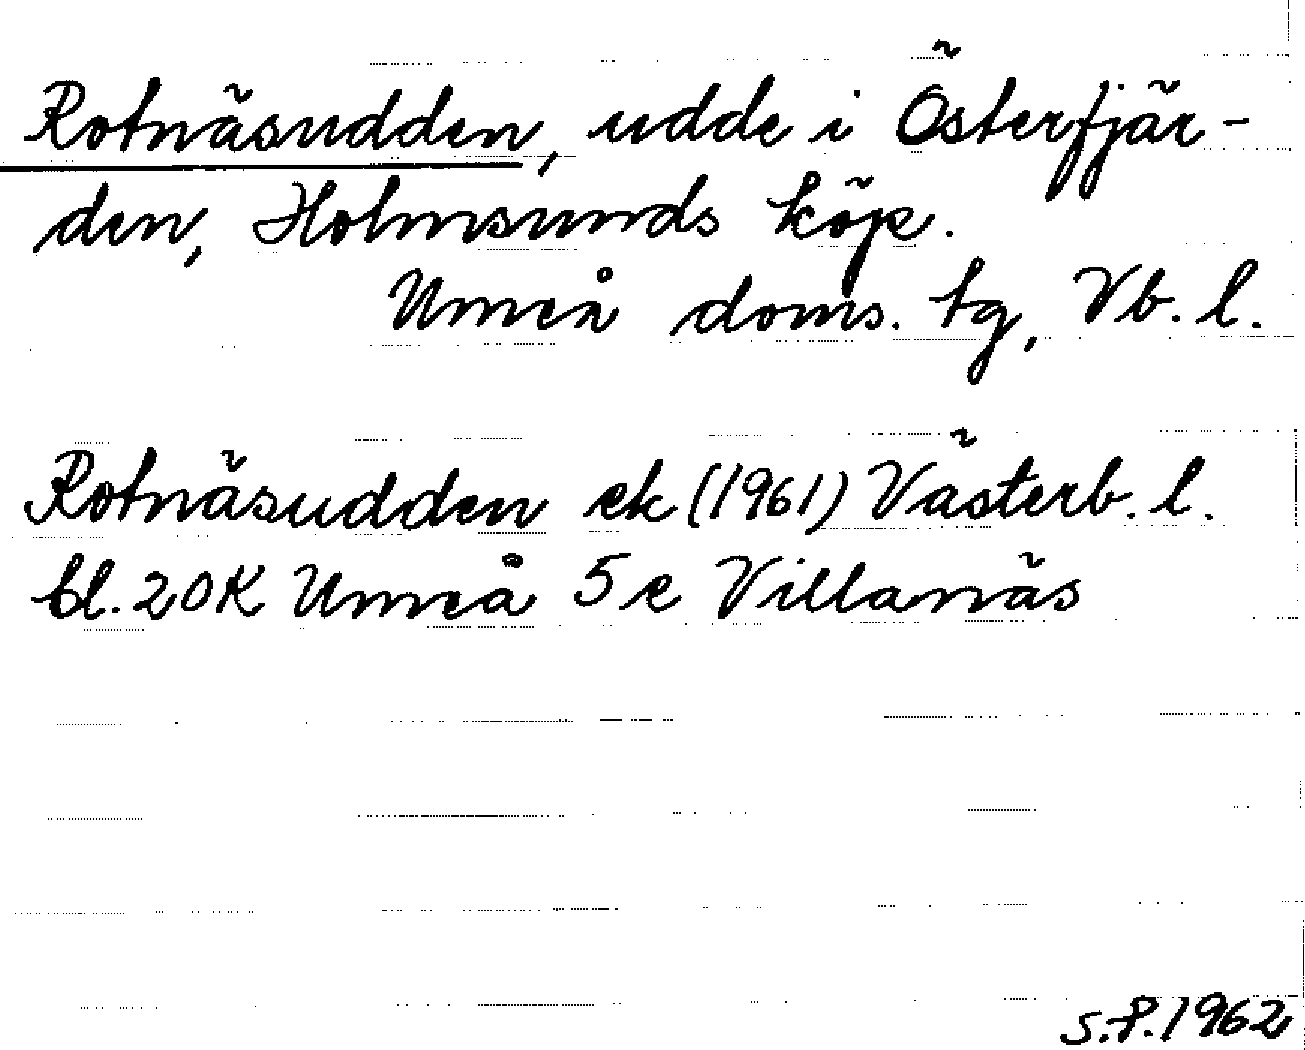 Rotnäsudden, udde i Österfjär-
den, Holmsunds köp.
Umeå doms. tg, Vb. l.
Rotnäsudden ek (1961) Västerb. l.
bl. 20K Umeå 5 e Villanäs
S.P. 1962